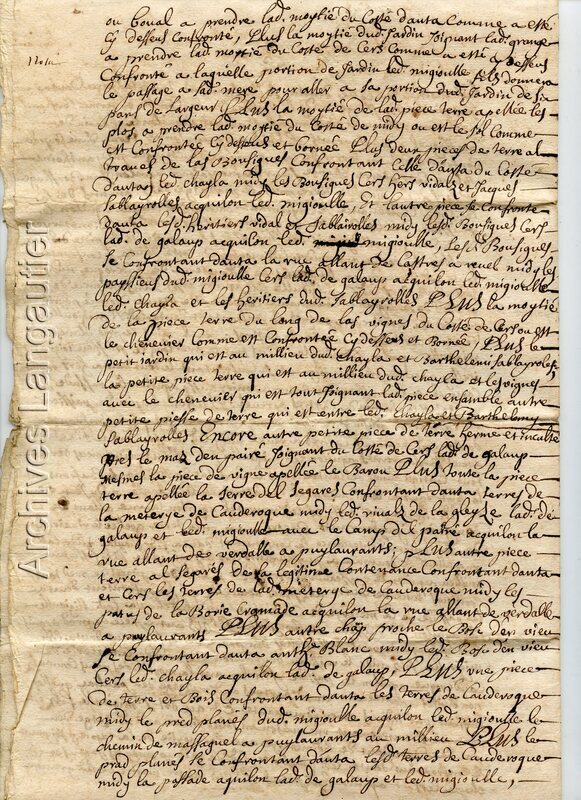 ou boual a prendre lad. moytié du Costé dauta Comme a esté
Cy dessus Confronté, Plus la moytié dud. Jardin Joignant lad. grange
a prendre lad. moytié du Costé de Cers Comme a esté cy dessus
Nota
Confronté a laquelle portion de Jardin led. migioulle fils donnera
le passage a sad. mere pour aller a sa portion dud. Jardin de six
pans de Largeur Plus la moytié de lad. piece terre apellée les
plos a prendre lad. moytié du Costé de midy ou est le sol Comme
est Confrontée Cy dessus et bornée Plus deux pieces de terre al
traves de las Bousigues Confrontant Celle dauta du Costé
dauta led. Chayla midy les Bousigues Cers hers vidal et Jacques
Sablayrolles aquilon led. migioulle, et lautre piece se Confronte
dauta lesd. heritiers vidal et Sablairolles midy lesd. Bousigues Cers
lad. de galaup aquilon led. migioulle, Les d. Bousigues
se Confrontant dauta la rue allant de Castres a revel midy les
dud. migioulle Cers lad. de galaup aquilon led. migioulle
led. Chayla et les heritiers dud. Sablayrolles Plus la moytié
de la piece terre du long de las vignes du Costé de Cers ou est
le Chenevier Comme est Confrontée Cy dessus et Bornée, Plus le
petit Jardin qui est au millieu dud. Chayla et Barthelemi Sablayrolles,
la petite piece terre qui est au millieu dud. Chayla et les vignes
avec le Chenevier qui est tout Joignant lad. piece ensamble autre
petite piesse de terre qui est entre led. Chayla et Barthelemy
Sablayrolles, Encore autre petite piece de terre herme et inculte
pres le mas den pairé Joignant du Costé de Cers lad. de galaup
la piece de vigne apellée le Barou Plus toute la piece
terre apellée la Terre del Segares Confrontant dauta terres de
la meterye de Cauderoque midy led. rivals de la gleyse lad. de
galaup et led. migioulle avec le Camp del patre aquilon la
rue allant de verdalle a puylaurants, Plus autre piece
terre al Segares de sa legitime Contenance Confrontant dauta
et Cers les Terres de lad. meterge de Cauderoque midy les
patus de la Borie aquilon la rue allant de verdalle
a puylaurants Plus autre Chāp proche le Bosc den vieu
se Confrontant dauta anth.e Blanc midy led. Bosc den vieu
Cers led. Chayla aquilon lad. de galaup, Plus vne piece
de terre et Bois Confrontant dauta les terres de Cauderoque
midy le pred planes dud. migioulle aquilon led. migioulle le
Chemin de massaguel a puylaurants au millieu Plus le
prad planes se Confrontant dauta lesd. terres de Cauderoque
midy la passade aquilon lad. de galaup et led. migioulle,
Archives Langautier